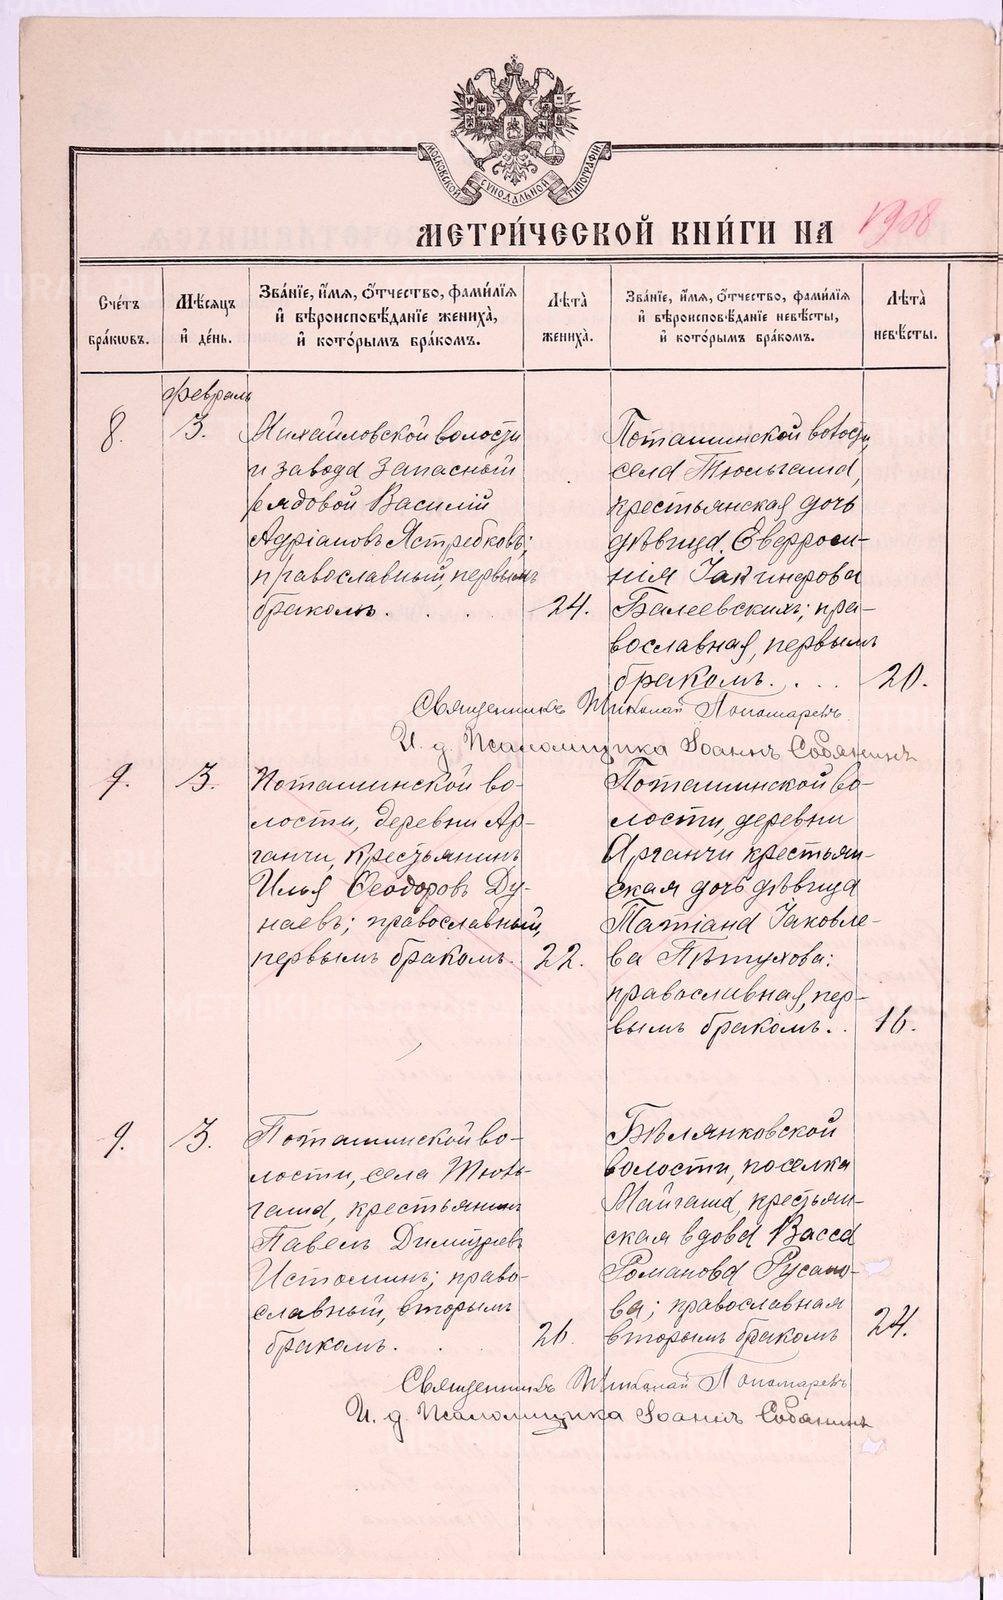 МОСКОВСКОЙ СѴНОДАЛЬНОЙ ТИПОГРАФІИ
МЕТРИ́ЧЕСКОЙ КНИ́ГИ НА 1908
Сче́тъ бра́кѡвъ.
Мѣ́сяцъ и҆ де́нь.
Зва́нїе, и҆́мѧ, ѻ҆́тчество, фами́лїѧ
и҆ вѣроисповѣ́данїе жениха̀,
и҆ кото́рымъ бра́комъ.
Лѣта̀ жениха̀.
Зва́нїе, и҆́мѧ, ѻ҆́тчество, фами́лїѧ
и҆ вѣроисповѣ́данїе невѣ́сты,
и҆ кото́рымъ бра́комъ.
Лѣта̀ невѣ́сты.
Февраль
8.
3.
Михайловской волости
и завода запасный
рядовой Василій
Адріановъ Ястребковъ;
православный, первымъ
бракомъ. . . .
24.
Поташинской волости,
села Тюльгаша,
крестьянская дочь
дѣвица Евфроси-
нія Іакинфова
Балеевскихъ; пра-
вославная, первымъ
бракомъ. . . .
20.
Священникъ Николай Пономаревъ
И. д. Псаломщика Іоаннъ Собянинъ
9.
3.
Поташинской во-
лости, деревни Ар-
ганчи, крестьянинъ
Илья Ѳеодоровъ Ду-
наевъ; православный,
первымъ бракомъ.
22.
Поташинской во-
лости, деревни
Арганчи крестьян-
ская дочь дѣвица
Татіана Іаковле-
ва Пѣтухова:
православная, пер-
вымъ бракомъ. .
16.
9.
3.
Поташинской во-
лости, села Тюль-
гаша, крестьянинъ
Павелъ Димитріевъ
Истоминъ; право-
славный, вторымъ
бракомъ. . .
26.
Бѣлянковской
волости, поселка
Майгаша, крестьян-
ская вдова Васса
Романова Русано-
ва; православная
вторымъ бракомъ
24.
Священникъ Николай Пономаревъ
И. д. Псаломщика Іоаннъ Собянинъ